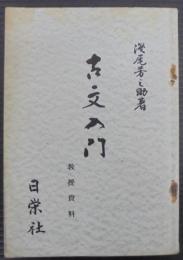 浅尾芳之助著
古文入門
教授資料
日栄社